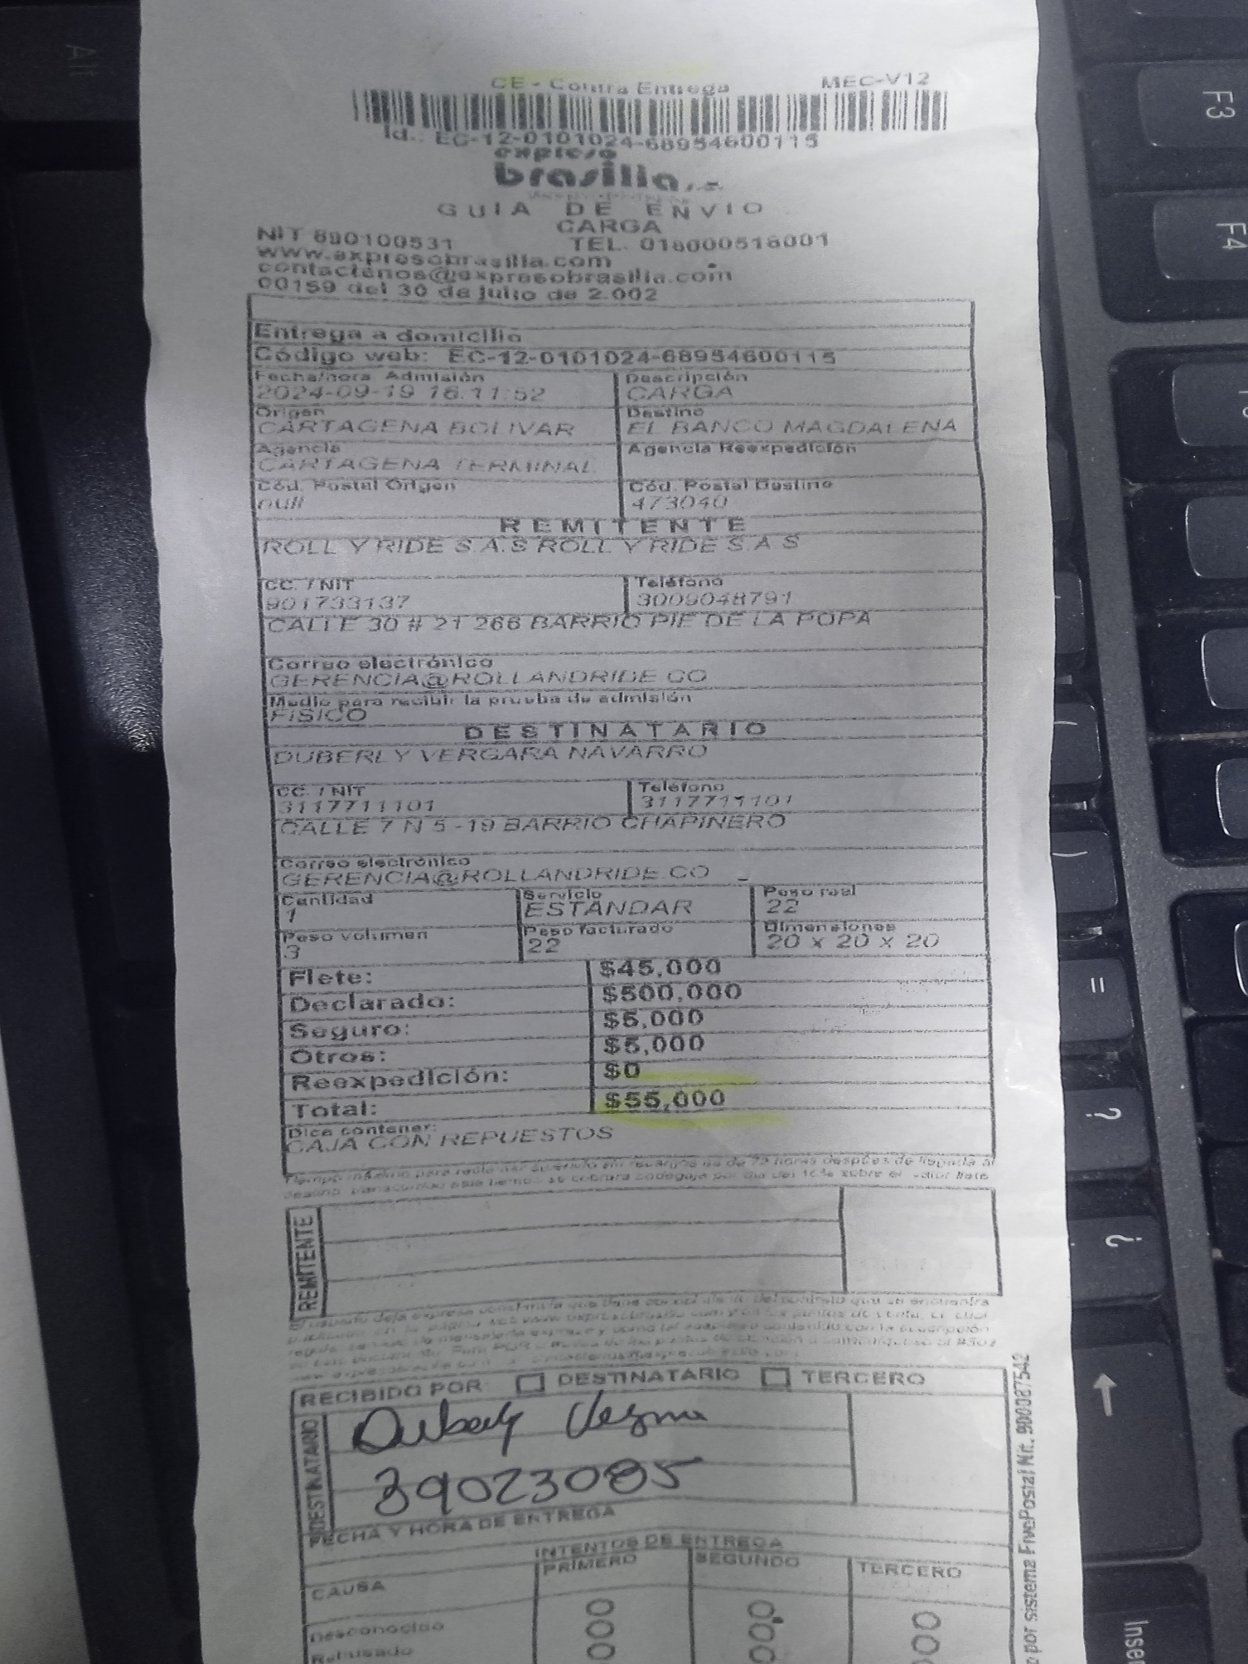 CE - Contra Entrega MEC-V12
Id.: EC-12-0101024-68954600115
expreso
brasilia s.a.
GUIA DE ENVIO
CARGA
NIT 890100531 TEL. 018000518001
www.expresobrasilia.com
contactenos@expresobrasilia.com
00159 del 30 de julio de 2.002
Entrega a domicilio
Código web: EC-12-0101024-68954600115
Fecha/hora Admisión Descripción
2024-09-19 16:11:52 CARGA
Origen Destino
CARTAGENA BOLIVAR EL BANCO MAGDALENA
Agencia Agencia Reexpedición
CARTAGENA TERMINAL
Cód. Postal Origen Cód. Postal Destino
null 473040
REMITENTE
ROLL Y RIDE S.A.S ROLL Y RIDE S.A S
CC. / NIT Teléfono
901733137 3009048791
CALLE 30 # 21 266 BARRIO PIE DE LA POPA
Correo electrónico
GERENCIA@ROLLANDRIDE.CO
Medio para recibir la prueba de admisión
FISICO
DESTINATARIO
DUBERLY VERGARA NAVARRO
CC. / NIT Teléfono
3117711101 3117711101
CALLE 7 N 5 -19 BARRIO CHAPINERO
Correo electrónico
GERENCIA@ROLLANDRIDE.CO
Cantidad Servicio Peso real
1 ESTANDAR 22
Peso volumen Peso facturado Dimensiones
3 22 20 x 20 x 20
Flete: $45,000
Declarado: $500,000
Seguro: $5,000
Otros: $5,000
Reexpedición: $0
Total: $55,000
Dice contener:
CAJA CON REPUESTOS
REMITENTE
RECIBIDO POR: DESTINATARIO TERCERO
DESTINATARIO
Duberly
39023085
FECHA Y HORA DE ENTREGA
INTENTOS DE ENTREGA
CAUSA PRIMERO SEGUNDO TERCERO
Desconocido
Rehusado
por sistema FivePostal Nit. 900087542
Alt
F3
F4
=
?
¿
Inser